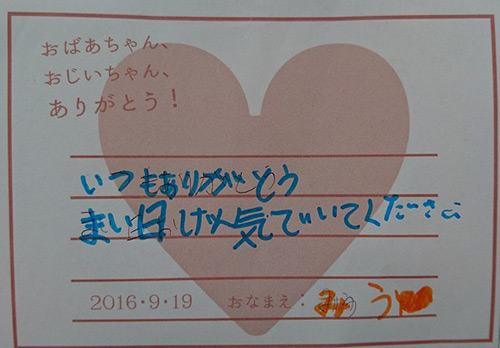 おばあちゃん、
おじいちゃん、
ありがとう!
いつもありがとう
まい日げん気でいてくださ
2016・9・19 おなまえ: みう